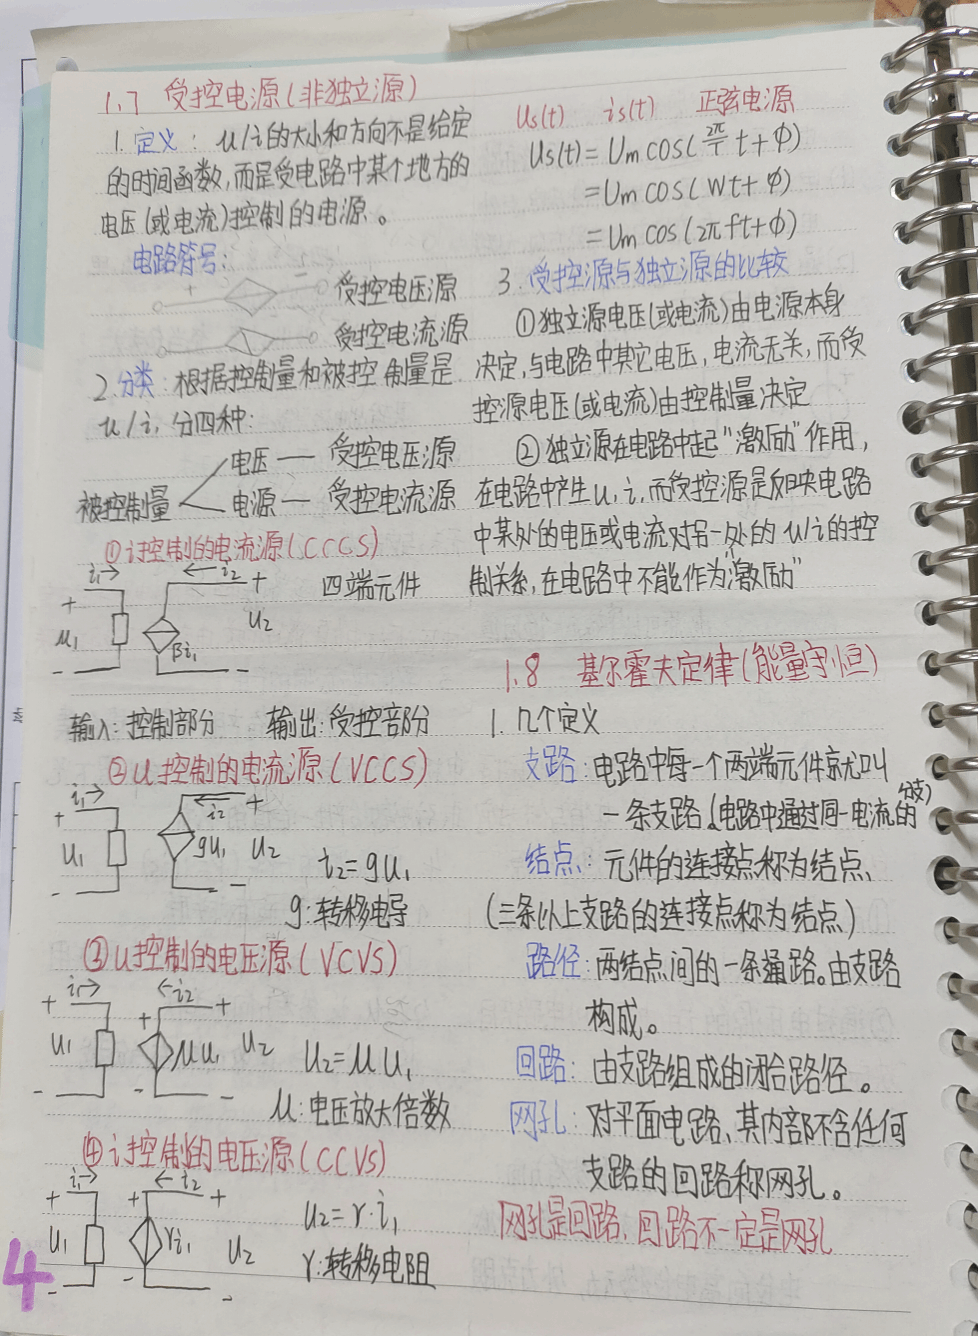 1.7 受控电源(非独立源)
1. 定义: u/i的大小和方向不是给定
的时间函数,而是受电路中某个地方的
电压(或电流)控制的电源。
电路符号:
+ - 受控电压源
受控电流源
2.分类:根据控制量和被控制量是
u/i,分四种:
电压 — 受控电压源
被控制量
电源 — 受控电流源
①i控制的电流源(CCCS)
i₁→ ←i₂ +
+ 四端元件
u₁ U₂
βi₁
- -
输入:控制部分 输出:受控部分
②u控制的电流源(VCCS)
i₁→ ←i₂ +
+
U₁ gu₁ U₂
i₂=gu₁
- -
g:转移电导
③u控制的电压源(VCVS)
+ i₁→ ←i₂ +
+
U₁ μu₁ U₂
U₂=μU₁
- - -
μ:电压放大倍数
④i控制的电压源(CCVS)
+ i₁→ + ←i₂ +
U₁ γi₁ U₂
U₂=γ·i₁
- - -
γ:转移电阻
4
Us(t) is(t) 正弦电源
Us(t)=Umcos(2π/T t+φ)
=Umcos(Wt+φ)
=Umcos(2πft+φ)
3.受控源与独立源的比较
①独立源电压(或电流)由电源本身
决定,与电路中其它电压,电流无关,而受
控源电压(或电流)由控制量决定
②独立源在电路中起"激励"作用,
在电路中产生u,i,而受控源是反映电路
中某处的电压或电流对另一处的u/i的控
制关系,在电路中不能作为"激励"
1.8 基尔霍夫定律(能量守恒)
1.几个定义
支路:电路中每一个两端元件就叫
一条支路(电路中通过同一电流的分支)
结点:元件的连接点称为结点、
(三条以上支路的连接点称为结点)
路径:两结点间的一条通路。由支路
构成。
回路:由支路组成的闭合路径。
网孔:对平面电路、其内部不含任何
支路的回路称网孔。
网孔是回路,回路不一定是网孔